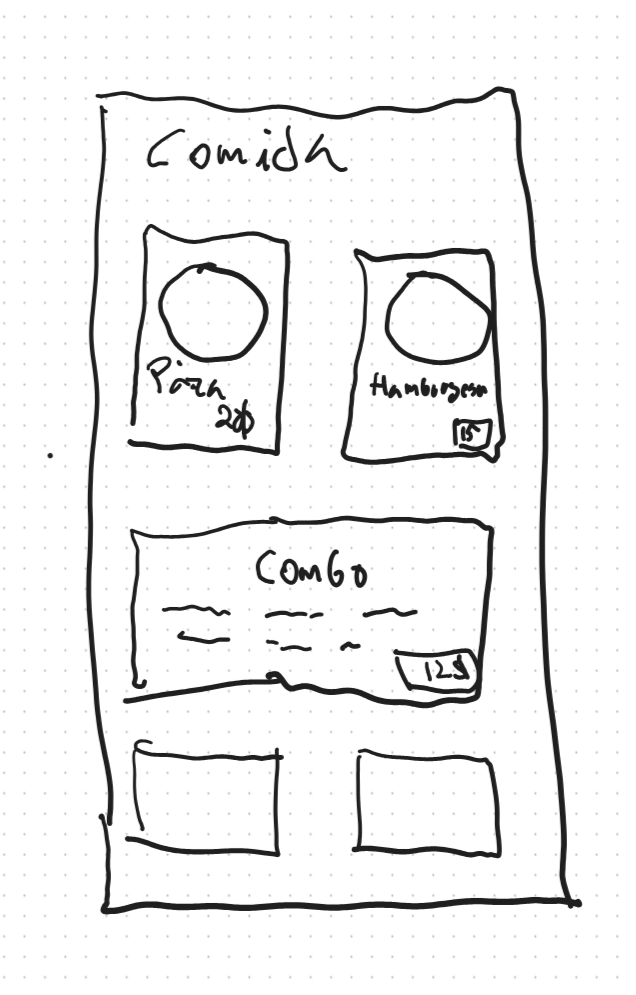 Comida
Pizza
20$
Hamburguesa
15
Combo
12$